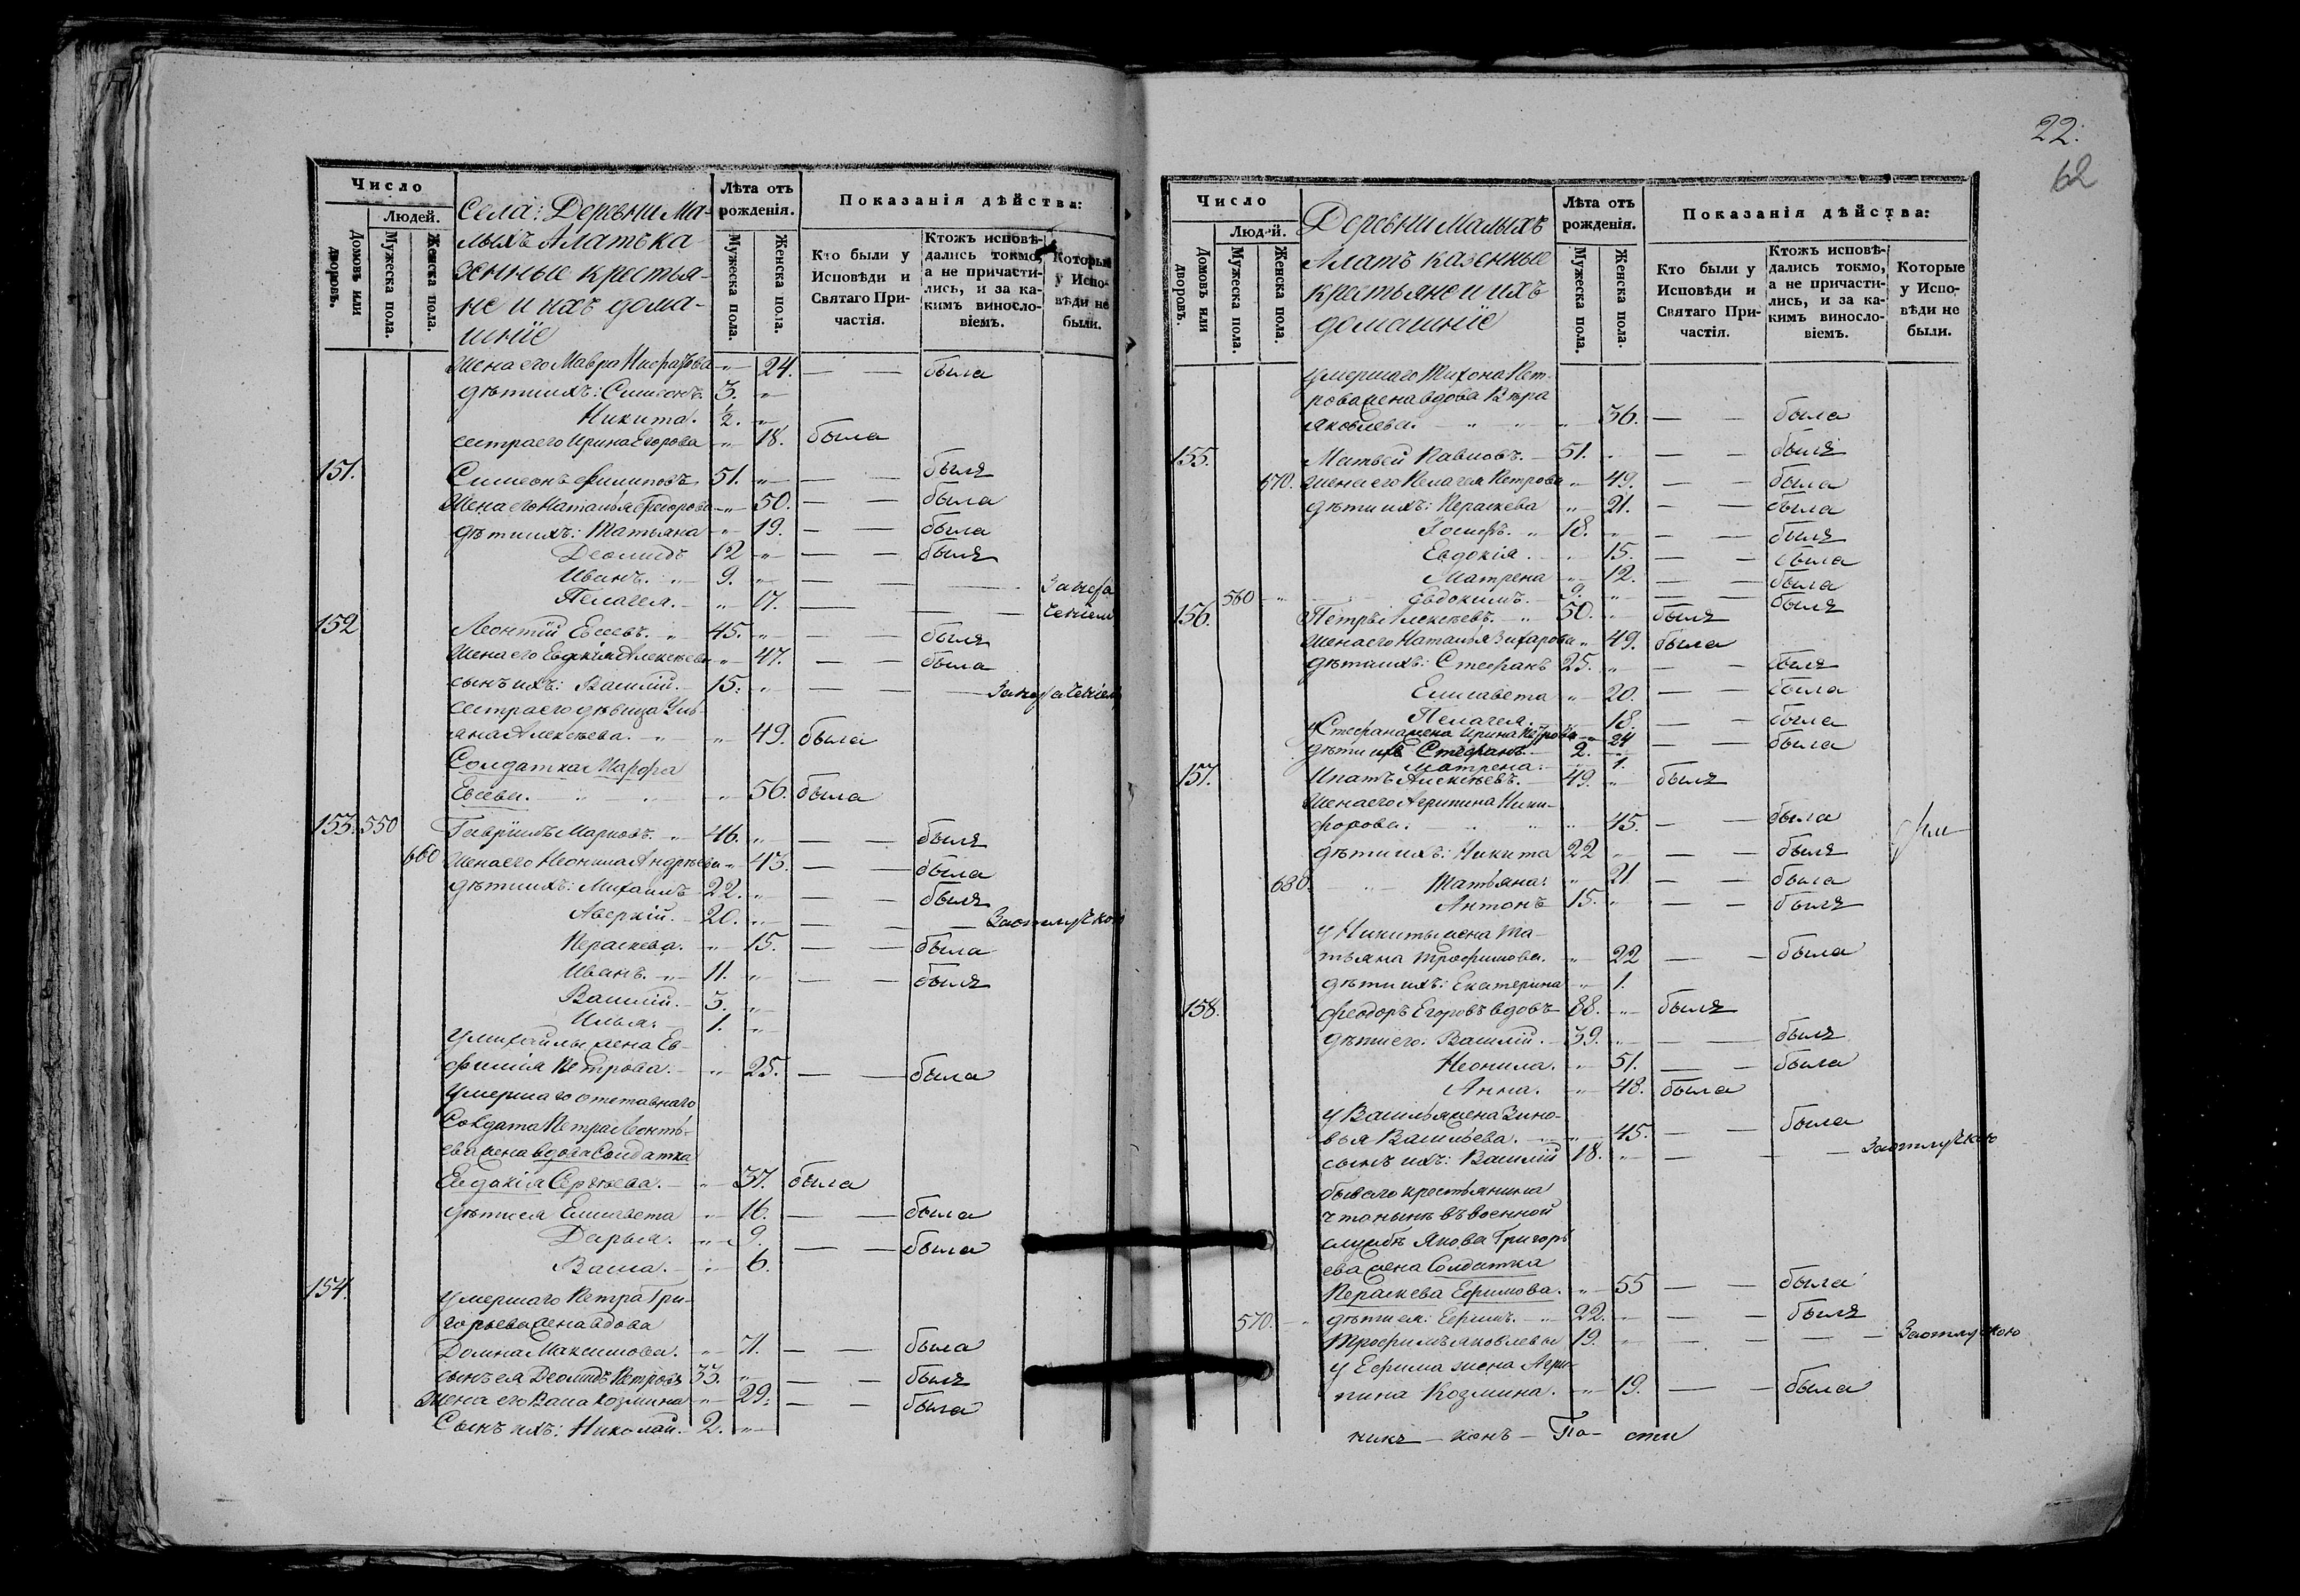 Число
Людей.
Домовъ или дворовъ.
Мужеска пола.
Женска пола.
Села: Деревни Ма-
лыхъ Алатъ ка-
зенные крестья-
не и ихъ дома-
шніе
Лѣта отъ рожденія.
Мужеска пола.
Женска пола.
Показанія дѣйства:
Кто были у Исповѣди и Святаго Причастія.
Ктожъ исповѣдались токмо, а не причастились, и за какимъ винословіемъ.
Которые у Исповѣди не были.
Жена его Мавра 24. — — была
дѣти ихъ: Симеонъ 3.
Никита. ½.
сестра его Ирина Егорова 18. была
151. Симеонъ Филиповъ 51. — — былъ
Жена его Наталья Григорова 50. — — была
дѣти ихъ: Татьяна 19. — — была
Деомидъ 12 — — былъ
Иванъ. 9. — —
Пелагея. 17. — —
152 Леонтій Евсеевъ. 45. — — былъ
Жена его Евдокія Алексѣева 47. — — была
сынъ ихъ: Василій. 15. — —
сестра его дѣвица Уль-
яна Алексѣева. 49. была
Солдатка Марфа
Евсева. 56. была
153. 550 Гавріилъ Марковъ. 46. — — былъ
660 Жена его Неонила Андрѣева 43. — — была
дѣти ихъ: Михаилъ 22. — — былъ
Аверкій. 20. — — — За отлучкою
Параскева. 15. — — была
Иванъ. 11. — — былъ
Василій. 3.
Илья. 1.
У Михайлы жена Ев-
фимія Петрова. 25. — — была
Умершаго отставнаго
Солдата Петра Леонть-
ева жена вдова Солдатка
Евдакія Сергѣева. 37. была
дѣти ея Елисавета 16. — — была
Дарья. 9. — — была
Васса. 6.
154. Умершаго Петра Гри-
горьева жена вдова
Домна Максимова. 71. — — была
сынъ ея Деомидъ Петровъ 33. — — былъ
Жена его Васа Козмина 29. — — была
Сынъ ихъ: Николай. 2.
22.
62
Число
Людей.
Домовъ или дворовъ.
Мужеска пола.
Женска пола.
Деревни Малыхъ
Алатъ казенные
крестьяне и ихъ
домашніе
Лѣта отъ рожденія.
Мужеска пола.
Женска пола.
Показанія дѣйства:
Кто были у Исповѣди и Святаго Причастія.
Ктожъ исповѣдались токмо, а не причастились, и за какимъ винословіемъ.
Которые у Исповѣди не были.
Умершаго Тихона Пет-
рова жена вдова Вѣра
Яковлева. 36. — — была
155. Матвей Павловъ. 51. — — былъ
670. Жена его Пелагея Петрова 49. — — была
дѣти ихъ: Параскева 21. — — была
Іосифъ. 18. — — былъ
Евдокія. 15. — — была
Матрена 12. — — была
560 Евдокимъ. 9. — — былъ
156. Петръ Алексѣевъ. 50. былъ
Жена его Наталья Захарова 49. была
дѣти ихъ: Стефанъ 25. — — былъ
Елисавета 20. — — была
Пелагея. 18. — — была
у Стефана жена Ирина Петрова 24 — — была
дѣти ихъ Стефанъ. 2.
Матрена. 1.
157. Ипатъ Алексѣевъ. 49. былъ
Жена его Агрипина Ники-
форова. 45. — — была
дѣти ихъ: Никита 22 — — былъ
680. Татьяна. 21 — — была
Антонъ 15. — — былъ
У Никиты жена Та-
тьяна Трофимова. 22 — — была
дѣти ихъ: Екатерина 1.
158. Феодоръ Егоровъ вдовъ 88. былъ
дѣти его: Василій. 39. — — былъ
Неонила. 51. — — была
Анна. 48. была
У Василья жена Зино-
вья Васильева. 45. — — была
сынъ ихъ: Василій 18. — — — За отлучкою
бываго крестьянина
что нынѣ въ военной
службѣ Якова Григорь
ева жена Солдатка
Параскева Ефимова. 55 — — была
570. дѣти ея: Ефимъ. 22. — — былъ
Трофимъ Яковлевы 19. — — — За отлучкою
У Ефима жена Агри-
пина Козмина. 19. — — была
никъ — конъ — По- сти